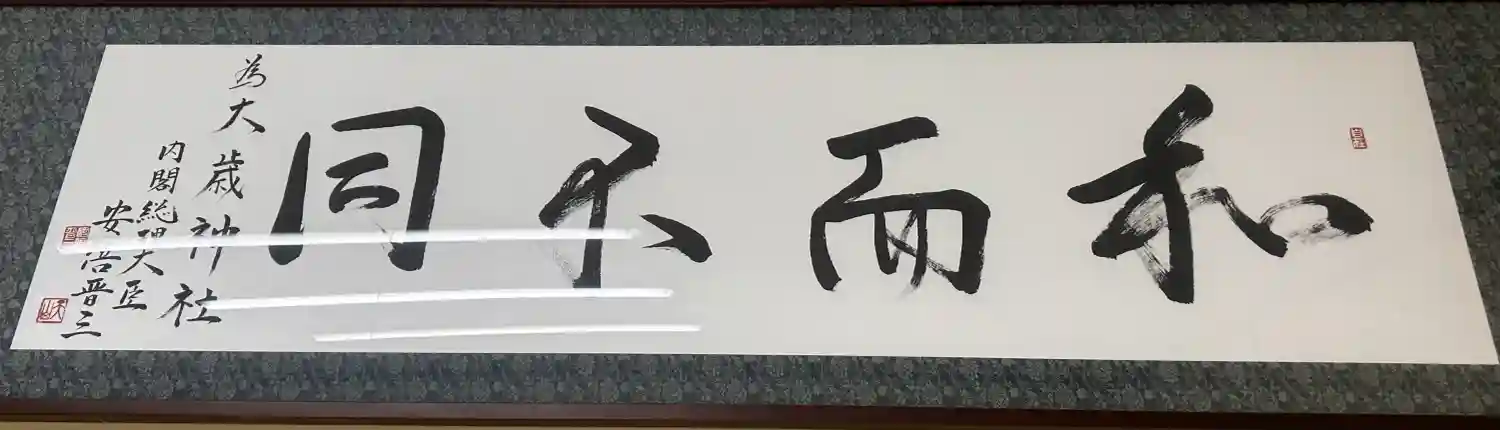 和而不同
為大歳神社
内閣総理大臣
安倍晋三